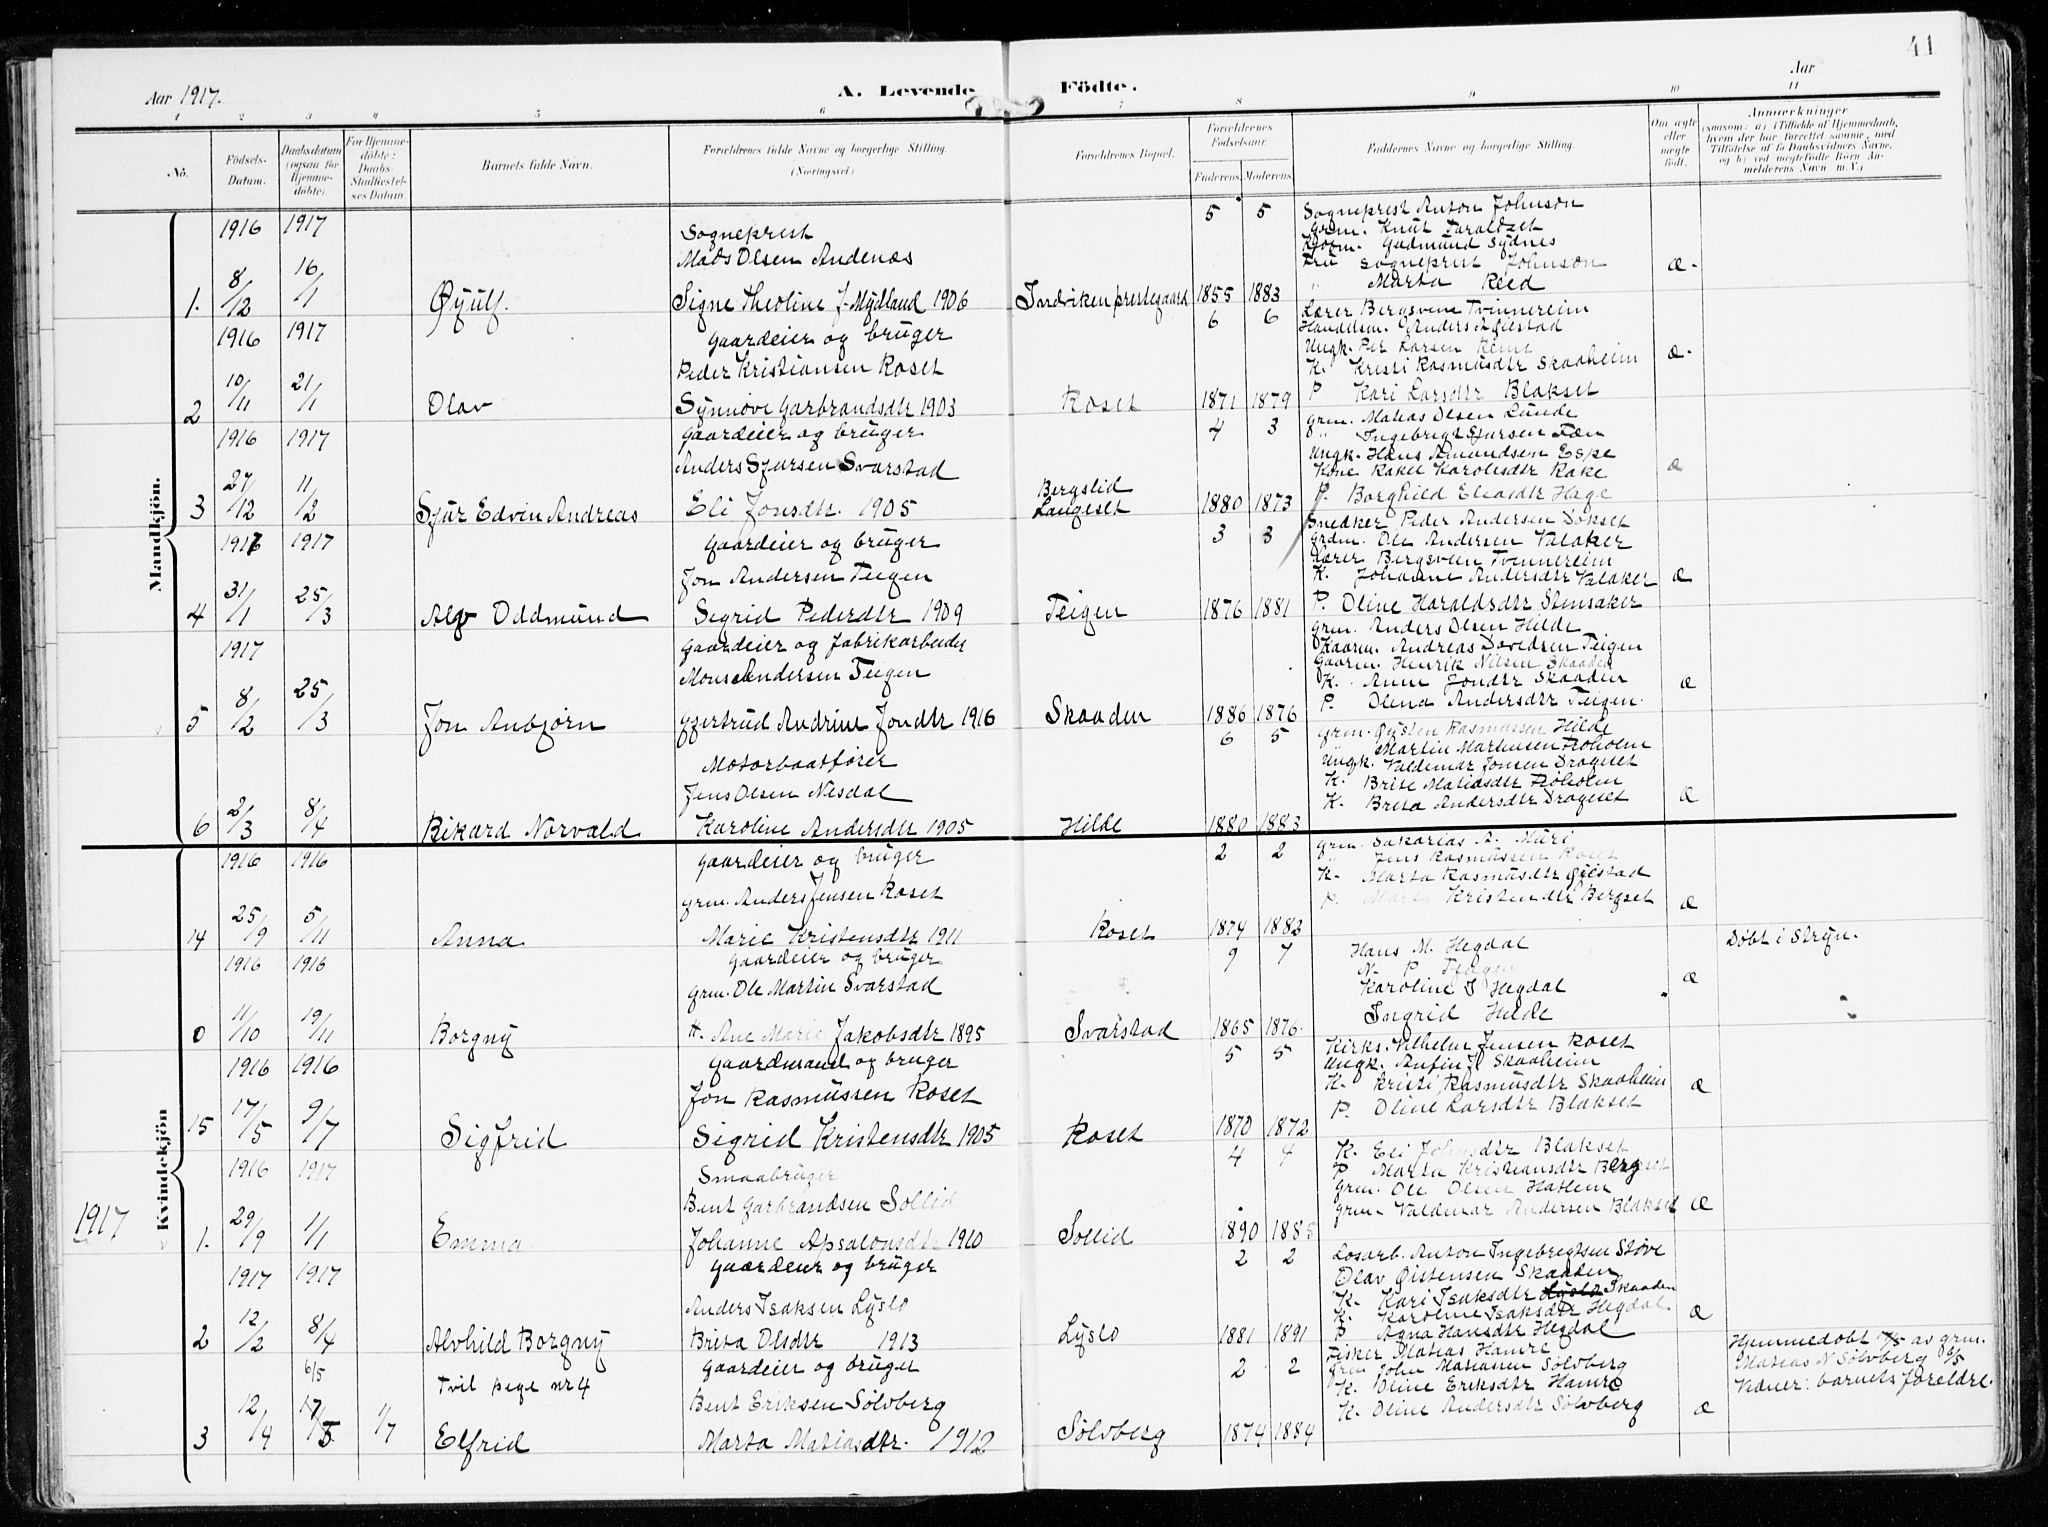 41
Aar 1917.
A. Levende
Födte.
Aar
1 2 3 4 5 6 7 8 9 10 11
No.
Födsels-
Datum.
Daabsdatum
(ogsaa for
Hjemme-
döbte).
For Hjemme-
döbte:
Daabs-
Stadfæstel-
ses Datum.
Barnets fulde Navn.
Forældrenes fulde Navne og borgerlige Stilling.
(Næringsvei.)
Forældrenes Bopæl.
Forældrenes
Födselsaar.
Faderens
Moderens
Faddernes Navne og borgerlige Stilling.
Om ægte
eller
uægte
födt.
Anmærkninger
(saasom: a) i Tilfælde af Hjemmedaab,
hvem der har forrettet samme, med
Tilföielse af to Daabsvidners Navne,
og b) ved uægtefödte Börn An-
melderens Navn m. V.)
Mandkjön.
1916 1917
Sogneprest
5 5
Sogneprest Anton Johnson
Grdm. Knut Taraldset
Gudmund Sydnes
Mads Olsen Andenæs
Fru sogneprest Johnson
Æ.
" Marta Reed
1. 8/12 16/1 Øyulf. Signe Theoline J. Mydland 1906 Indviken prestegaard 1855 1883
1916 1917
gaardeier og bruger
6 6
Lærer Bergsvein Tvinnereim
Handelsm. Anders Øiestad
Ungk. Per Larsen Reme
Peder Kristiansen Roset
K. Kristi Rasmusdtr Skaaheim
Æ.
P. Kari Larsdtr Blakset
2 10/11 21/1 Olav Synnøve Garbrandsdtr 1903 Roset 1871 1879
1916 1917
gaardeier og bruger
4 3
grm. Matias Olsen Lunde
" Ingebrigt Sjursen Tæn
Anders Sjursen Svarstad
Ungk. Hans Amundsen Espe
Kone Rakel Karolisdtr Rake
Æ
P. Borghild Eliasdtr Hage
3 27/12 11/2 Sjur Edvin Andreas Eli Jonsdtr. 1905 Bergslid
Langeset 1880 1873
1917 1917
gaardeier og bruger
3 3
Snedker Peder Andersen Dokset
Grdm. Ole Andersen Valaker
Lærer Bergsvein Tvinnereim
Jon Andersen Teigen
K. Johanne Andersdtr Valaker
Æ
P. Oline Haraldsdtr Stensaker
4 31/1 25/3 Alv Oddmund Sigrid Pedersdtr 1909 Teigen 1876 1881
1917
gaardeier og fabrikarbeider
grm. Anders Olsen Hilde
Kaarm. Andreas Davidsen Teigen
Gaarm. Henrik Nilsen Skaaden
Mons Andersen Teigen
K. Anne Jonsdtr Skaaden
Æ
P. Olena Andersdtr Teigen.
5 8/2 25/3 Jon Anbjørn Gjertrud Andrine Jonsdtr 1916 Skaaden 1886 1876
6 5
Motorbaatfører
grm. Øisten Rasmussen Hilde
" Martin Martinusen Froholm
Ungk. Valdemar Jonsen Drageset
Jens Olsen Nesdal
K. Brite Matiasdtr Froholm
K. Brita Andersdtr Drageset
Æ
6 2/3 8/4 Rikard Norvald Karoline Andersdtr 1905 Hilde 1880 1883
Kvindekjön
1916 1916
gaardeier og bruger
2 2
grm. Sakarias A. Muri
" Jens Rasmussen Roset
K. Marta Rasmusdtr Øiestad
grm. Anders Jensen Roset
Kristendtr Bergset
Æ
14 25/9 5/11 Anna Marie Kristensdtr 1911 Roset 1874 1882
Døbt i Stryn.
1916 1916
gaardeier og bruger
9 7
Hans M. Hegdal
N. P. Teigen
grm. Ole Martin Svarstad
Karoline J Hegdal
Æ
Ingrid Hilde
0 11/10 19/11 Borgny H. Ane Marie Jakobsdtr 1895 Svarstad 1865 1876
1916 1916
gaardmand og bruger
5 5
Kirks. Vilhelm Jensen Roset
Ungk. Anfin J. Skaaheim
Jon Rasmussen Roset
K. Kristi Rasmusdtr Skaaheim
Æ
P. Oline Larsdtr Blakset
15 17/5 9/7 Sigfrid Sigrid Kristensdtr 1905 Roset 1870 1872
1916 1917
Smaabruger
4 4
K. Eli Johnsdtr Blakset
P Marta Kristiansdtr Bergset
Bent Garbrandsen Sollid
grm. Ole Olsen Hatlem
grm. Valdemar Andersen Blakset
Æ
1917
1. 29/9 1/1 Emma Johanne Apsalonsdtr 1910 Sollid 1890 1885
1917 1917
gaardeier og bruger
2 2
Losarb. Anton Ingebregtsen Støve
Olav Øistensen Skaaden
Anders Isaksen Lyslo
K. Kari Isaksdtr Lyslo Skaaden
K. Karoline Isaksdtr Hegdal
Æ
P Agna Hansdtr Hegdal
2 12/2 8/4 Alvhild Borgny Brita Olsdtr 1913 Lyslo 1881 1891
6/5
Tvil pege nr 4
gaardeier og bruger
2 2
Fisker Matias Hamre
grm John Matiassen Sølvberg
K. Oline Eriksdtr Hamre
Bent Eriksen Sølvberg
K. Oline Andersdtr Sølvberg
Æ
Hjemmedøbt av grm.
Matias N Sølvberg 6/5
Vidner: barnets foreldre.
3 12/4 17/5 1/7 Elfrid Marta Matiasdtr. 1912 Sølvberg 1874 1884